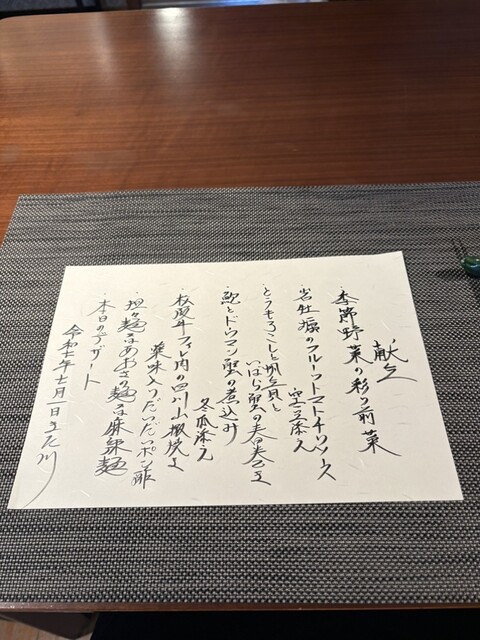 献立
・季節野菜の彩り前菜
・岩牡蠣のフルーツトマトチリソース
空豆添え
・とうもろこしと帆立貝と
いばら蟹の春巻き
・鮑とドゥマン蟹の煮込み
冬瓜添え
・牛フィレ肉の四川山椒焼き
薬味入りだいだいポン酢
・担々麺 又は あおさの麺 又は 麻辣麺
・本日のデザート
令和七年七月一日